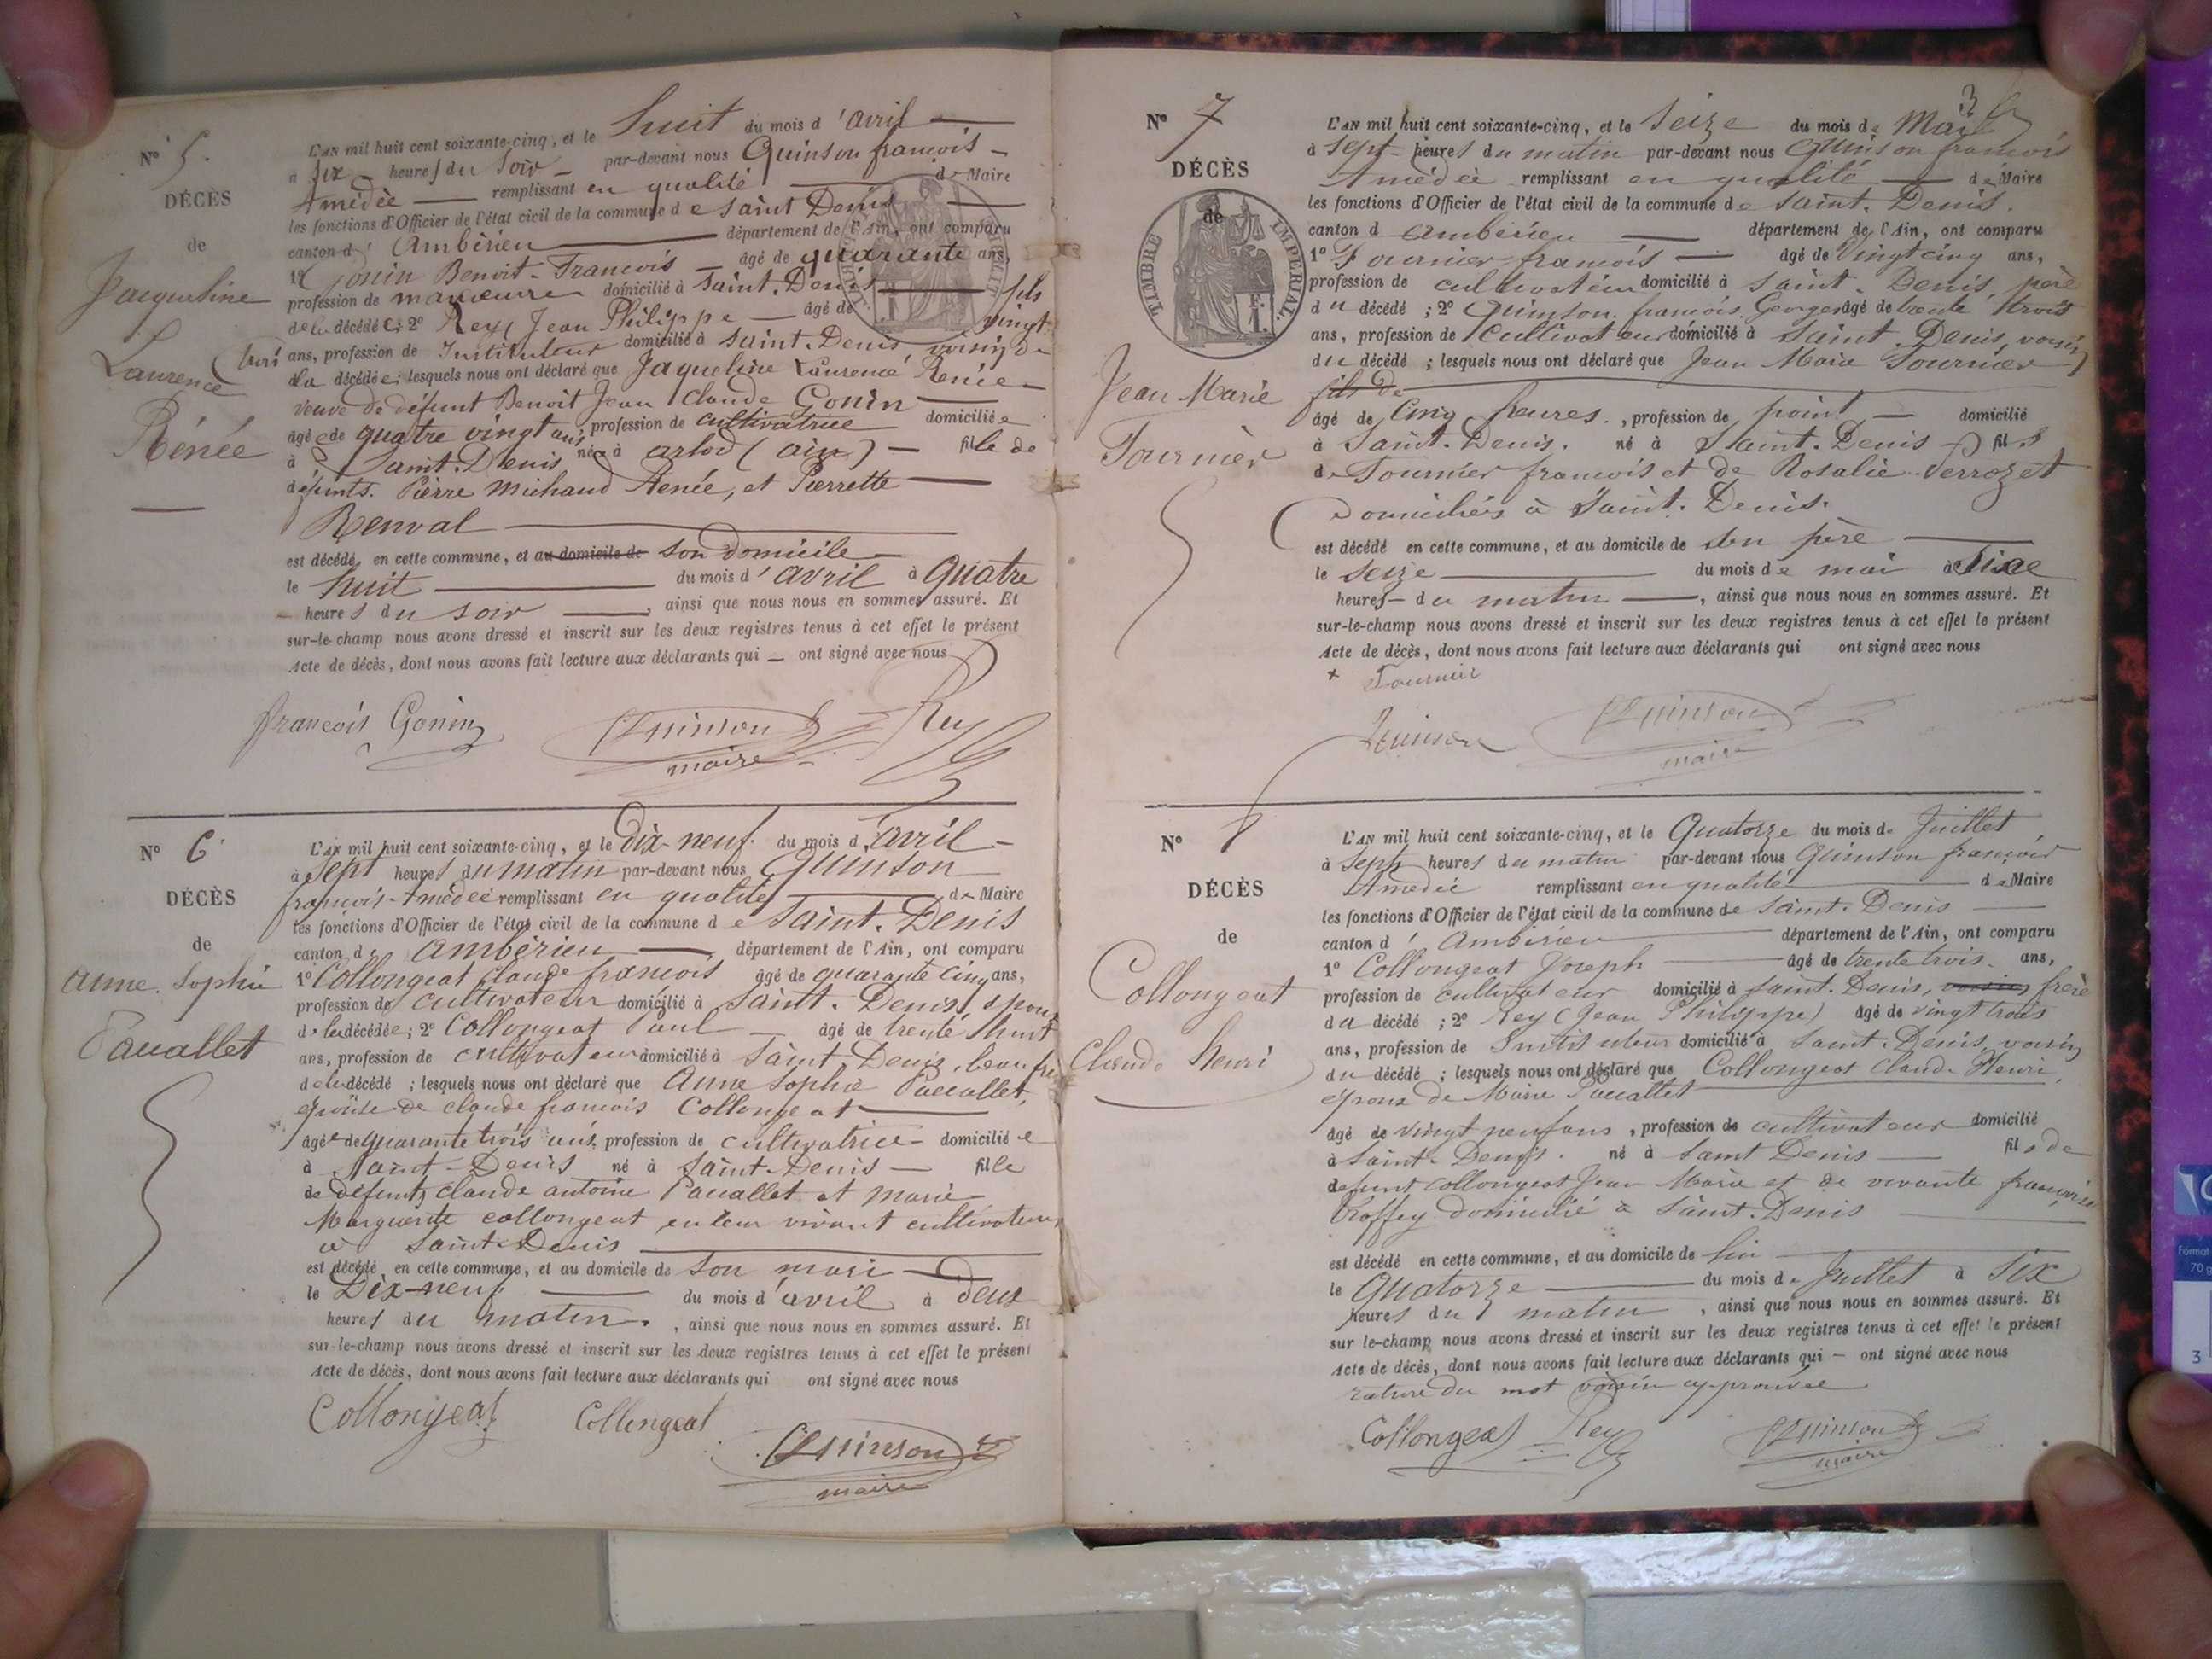 N° 5.
DÉCÈS
de
Jacqueline
Laurence
Rénée
L'AN mil huit cent soixante-cinq, et le huit du mois d'avril
à six heures du soir par-devant nous Quinson françois
Amédèe remplissant en qualité de Maire
les fonctions d'Officier de l'état civil de la commune de saint Denis
canton d'Ambérieu département de l'Ain, ont comparu
1° Gonin Benoit-François âgé de quarante ans,
profession de manœuvre domicilié à saint. Denis fils
de la décédée; 2° Rey Jean Philippe âgé de vingt
trois ans, profession de Instituteur domicilié à saint. Denis voisin de
la décédée; lesquels nous ont déclaré que Jaqueline Laurence Renée
veuve de défunt Benoit Jean Claude Gonin
âgée de quatre vingt ans, profession de cultivatrice domiciliée
à Saint. Denis née à arlod (ain) fille de
défunts. Pierre Michaud Renée, et Pierrette
Renval
est décédé, en cette commune, et au domicile de son domicile
le huit du mois d'avril à quatre
heures du soir, ainsi que nous nous en sommes assuré. Et
sur-le-champ nous avons dressé et inscrit sur les deux registres tenus à cet effet le présent
Acte de décès, dont nous avons fait lecture aux déclarants qui ont signé avec nous
françois Gonin Quinson Rey
maire
N° 6
DÉCÈS
de
anne. Sophie
Pauallet
L'AN mil huit cent soixante-cinq, et le dix-neuf du mois d'avril
à sept heures du matin par-devant nous Quinson
françois-Amédée remplissant en qualité de Maire
les fonctions d'Officier de l'état civil de la commune de Saint. Denis
canton de ambérieu département de l'Ain, ont comparu
1° Collongeat Claude françois âgé de quarante cinq ans,
profession de cultivateur domicilié à Saint. Denis, époux
de la décédée; 2° Collongeat Paul âgé de trente huit
ans, profession de cultivateur domicilié à Saint Denis, beau fre
de la décédé; lesquels nous ont déclaré que Anne Sophie Pauallet,
épouse de claude françois Collongeat
âgée de quarante trois ans, profession de cultivatrice domiciliée
à Saint-Denis né à Saint-Denis fille
de défunts claude antoine Pauallet et marie
Marguerite collongeat en leur vivant cultivateurs
à Saint-Denis
est décédé en cette commune, et au domicile de son mari
le Dix-neuf du mois d'avril à deux
heures du matin, ainsi que nous nous en sommes assuré. Et
sur-le-champ nous avons dressé et inscrit sur les deux registres tenus à cet effet le présent
Acte de décès, dont nous avons fait lecture aux déclarants qui ont signé avec nous
Collongeat Collongeat
Quinson
maire
3
N° 7
DÉCÈS
de
TIMBRE IMPÉRIAL
Jean Marie
Fournier
L'AN mil huit cent soixante-cinq, et le seize du mois de Mai
à sept heures du matin par-devant nous Quinson françois
Amédée remplissant en qualité de Maire
les fonctions d'Officier de l'état civil de la commune de saint. Denis.
canton d ambérieu département de l'Ain, ont comparu
1° Fournier françois âgé de vingt cinq ans,
profession de cultivateur domicilié à saint. Denis, père
du décédé; 2° Quinson françois Georges âgé de trente trois
ans, profession de cultivateur domicilié à saint. Denis, voisin
du décédé; lesquels nous ont déclaré que Jean Marie Fournier
fils de
âgé de Cinq heures., profession de point domicilié
à Saint. Denis. né à Saint. Denis fils
de Fournier françois et de Rosalie Verrozet
Domiciliés à Saint. Denis.
est décédé en cette commune, et au domicile de son père
le seize du mois de mai à Sixe
heures du matin, ainsi que nous nous en sommes assuré. Et
sur-le-champ nous avons dressé et inscrit sur les deux registres tenus à cet effet le présent
Acte de décès, dont nous avons fait lecture aux déclarants qui ont signé avec nous
Fournier
Quinson Quinson
maire
N° 8
DÉCÈS
de
Collongeat
Claude Henri
L'AN mil huit cent soixante-cinq, et le Quatorze du mois de Juillet
à sept heures du matin par-devant nous Quinson françois
Amedée remplissant en qualité de Maire
les fonctions d'Officier de l'état civil de la commune de saint. Denis
canton d'Ambérieu département de l'Ain, ont comparu
1° Collongeat Joseph âgé de trente trois ans,
profession de cultivateur domicilié à saint. Denis, voisin frère
du décédé; 2° Rey (Jean Philippe) âgé de vingt trois
ans, profession de Instituteur domicilié à Saint. Denis, voisin
du décédé; lesquels nous ont déclaré que Collongeat Claude Henri,
époux de Marie Pauallet
âgé de vingt neuf ans, profession de cultivateur domicilié
à Saint-Denis. né à Saint Denis fils de
defunt collongeat Jean Marie et de vivante françoise
broffey domicilié à Saint. Denis
est décédé en cette commune, et au domicile de lui
le Quatorze du mois de Juillet à Six
heures du matin, ainsi que nous nous en sommes assuré. Et
sur le-champ nous avons dressé et inscrit sur les deux registres tenus à cet effet le présent
Acte de décès, dont nous avons fait lecture aux déclarants qui ont signé avec nous
rature du mot voisin approuvée
Collongeat Rey Quinson
maire
Format
70 g
3